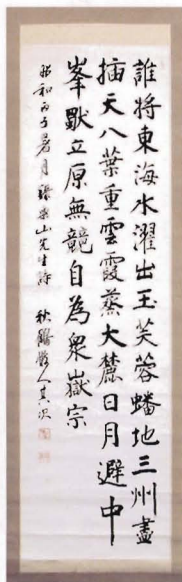 誰將東海水濯出玉芙蓉蟠地三州盡
插天八葉重雲霞蒸大麓日月避中
峯獨立原無競自為衆嶽宗
昭和丙子暑月 栗山先生詩 秋鶴 人